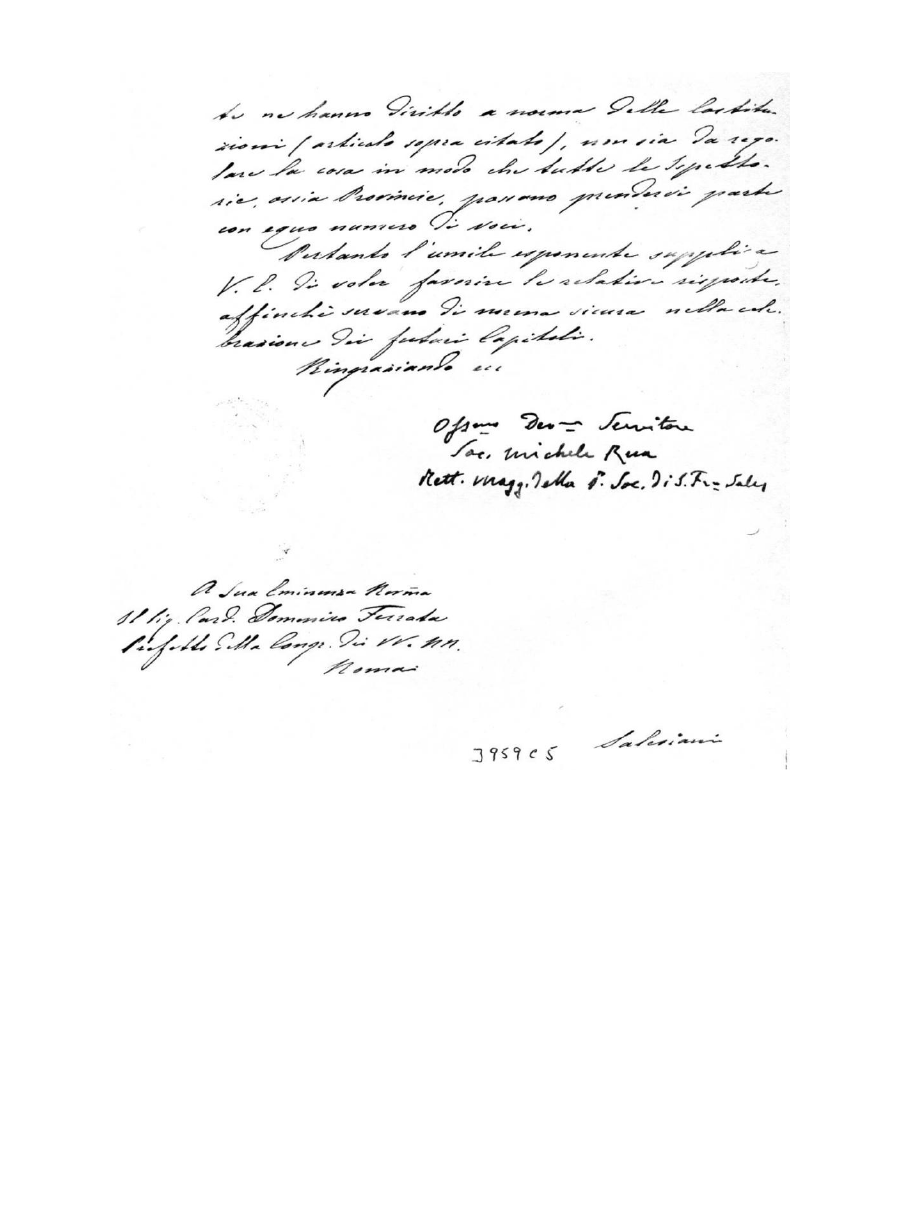 te ne hanno diritto a norma delle Costitu-
zioni (articolo sopra citato), non sia da rego-
lare la cosa in modo che tutte le Ispetto-
rie, ossia Provincie, possano prendervi parte
con equo numero di voci.
Pertanto l'umile esponente supplica
V. E. di voler favorire le relative risposte,
affinchè servano di norma sicura nella cele-
brazione dei futuri Capitoli.
Ringraziando ecc
Ossmo Devmo Servitore
Sac. Michele Rua
Rett. Magg. della P. Soc. di S. Frco Sales
A Sua Eminenza Revma
Il Sig. Card. Domenico Ferrata
Prefetto della Congr. dei VV. RR.
Roma
3959 C 5
Salesiani